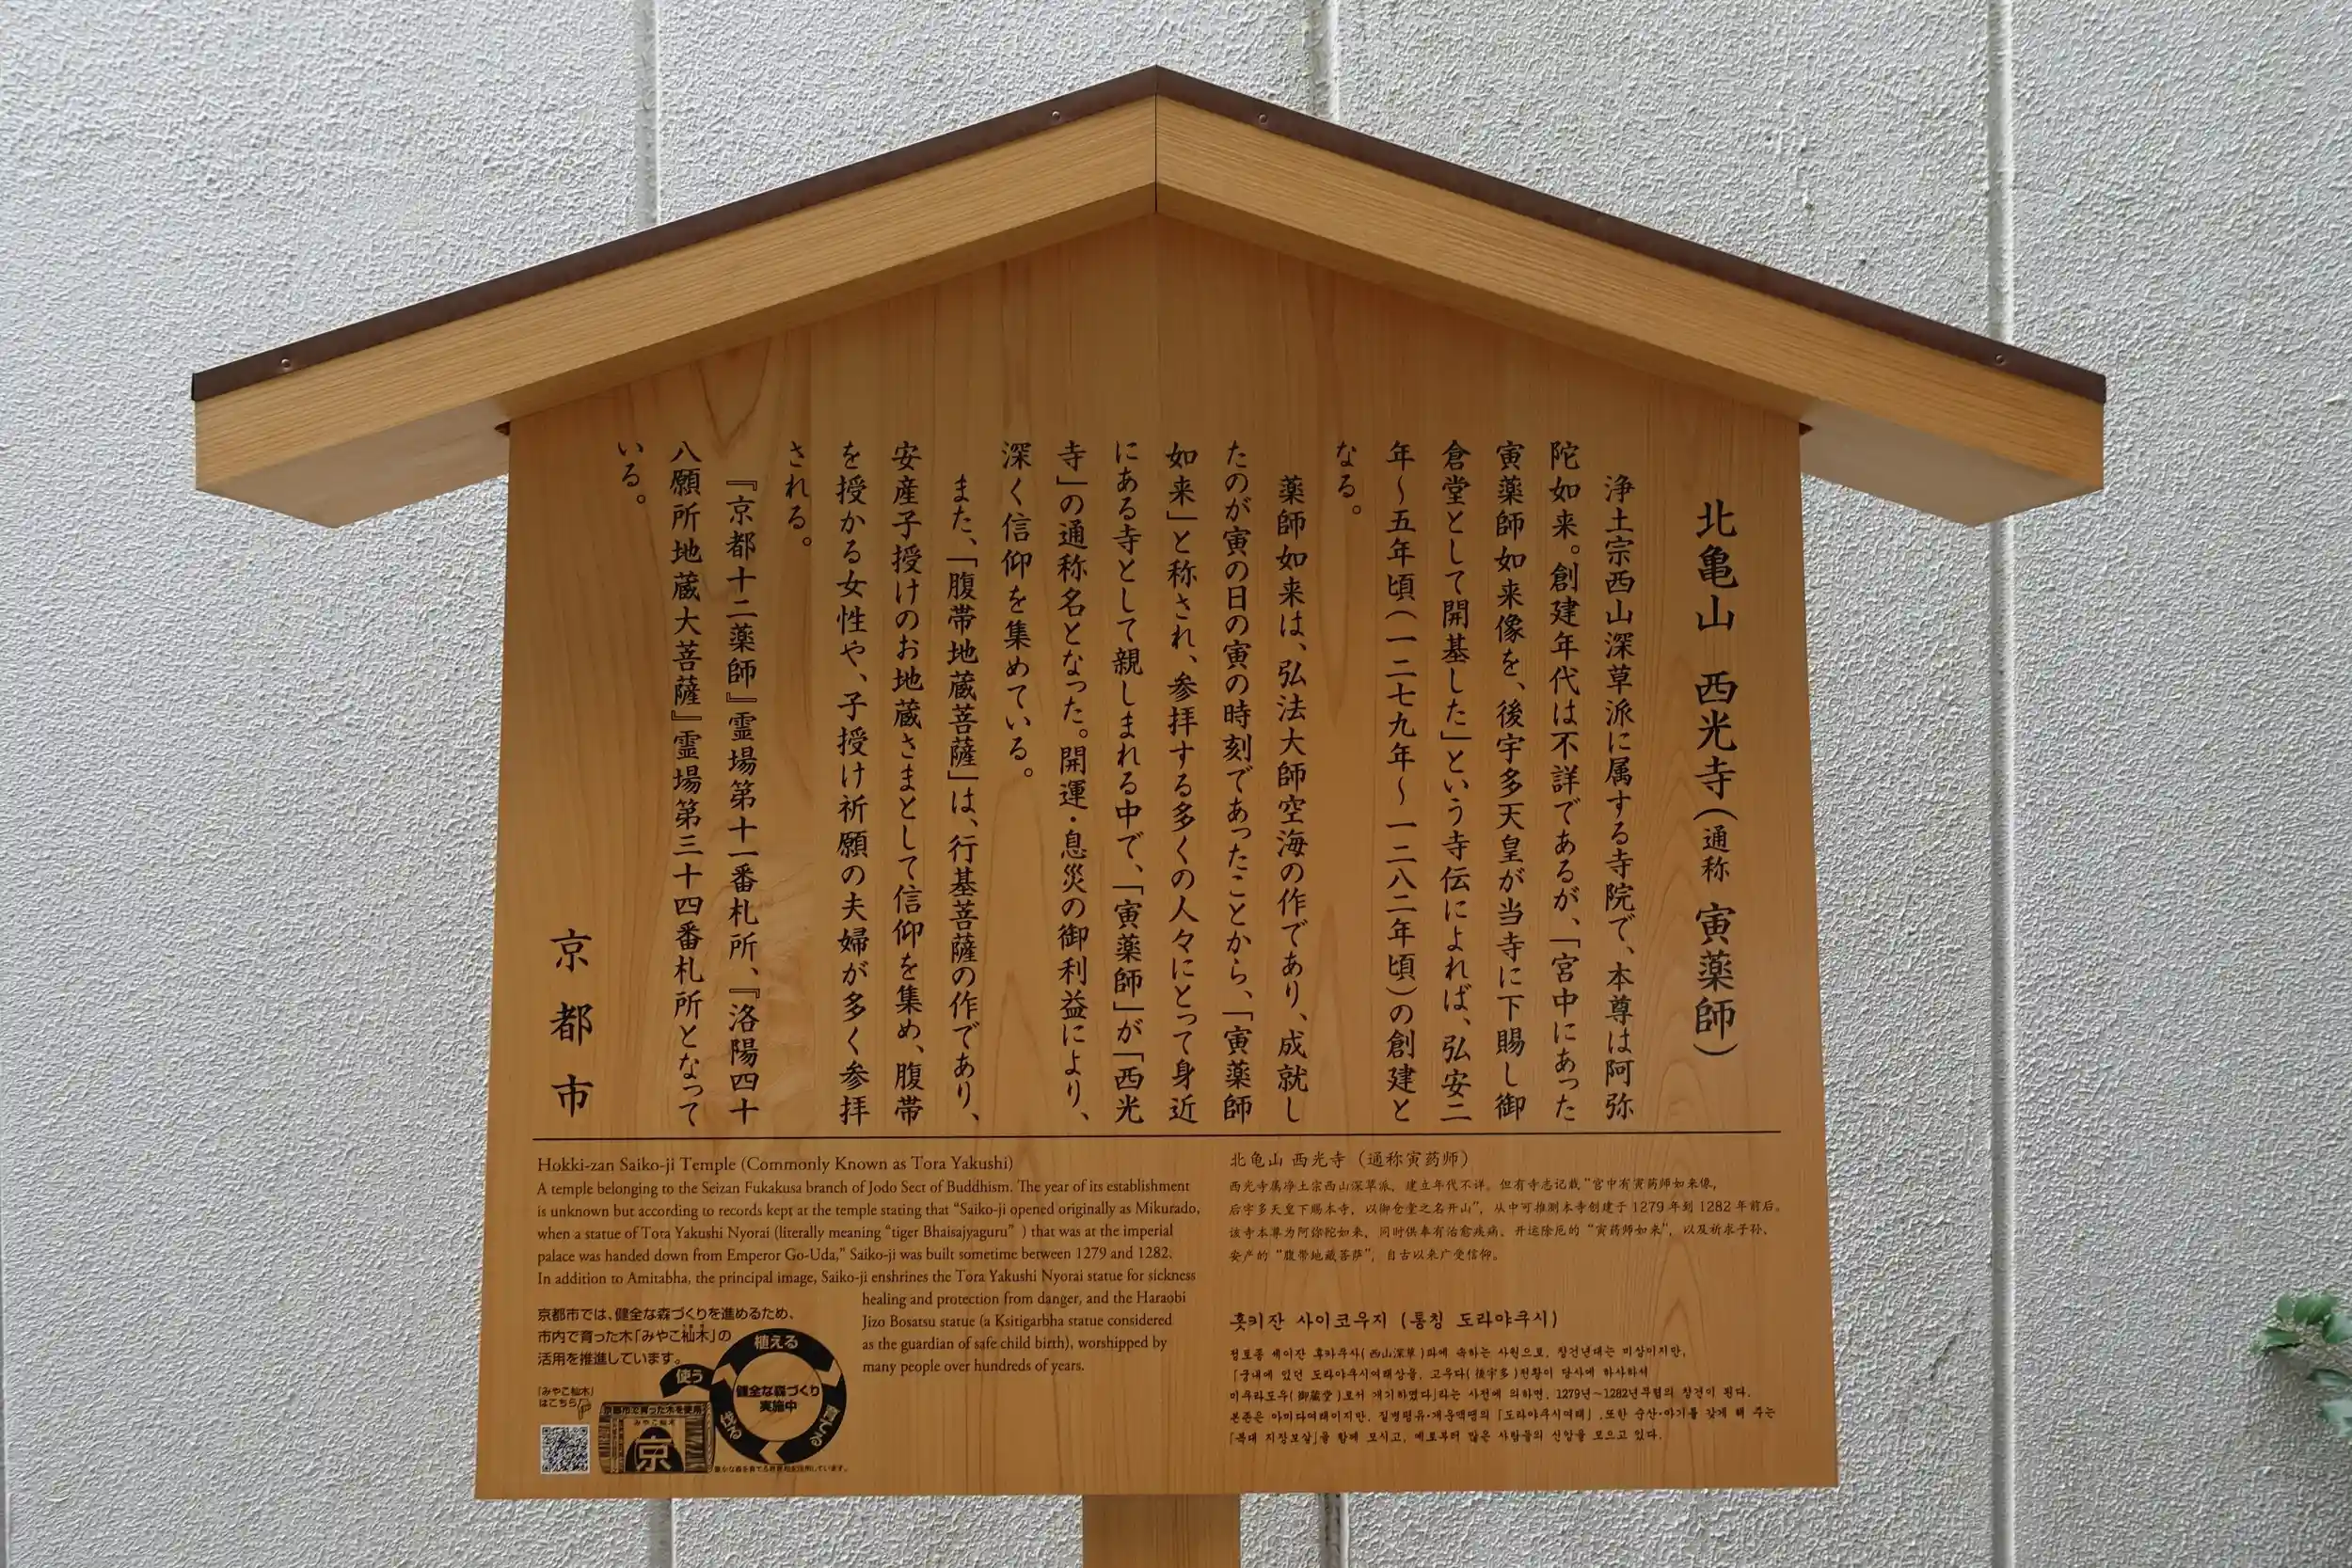 北亀山 西光寺(通称 寅薬師)
浄土宗西山深草派に属する寺院で、本尊は阿弥
陀如来。創建年代は不詳であるが、「宮中にあった
寅薬師如来像を、後宇多天皇が当寺に下賜し御
倉堂として開基した」という寺伝によれば、弘安二
年〜五年頃(一二七九年〜一二八二年頃)の創建と
なる。
薬師如来は、弘法大師空海の作であり、成就し
たのが寅の日の寅の時刻であったことから、「寅薬師
如来」と称され、参拝する多くの人々にとって身近
にある寺として親しまれる中で、「寅薬師」が「西光
寺」の通称名となった。開運・息災の御利益により、
深く信仰を集めている。
また、「腹帯地蔵菩薩」は、行基菩薩の作であり、
安産子授けのお地蔵さまとして信仰を集め、腹帯
を授かる女性や、子授け祈願の夫婦が多く参拝
される。
『京都十二薬師』霊場第十一番札所、『洛陽四十
八願所地蔵大菩薩』霊場第三十四番札所となって
いる。
京都市
Hokki-zan Saiko-ji Temple (Commonly Known as Tora Yakushi)
A temple belonging to the Seizan Fukakusa branch of Jodo Sect of Buddhism. The year of its establishment
is unknown but according to records kept at the temple stating that “Saiko-ji opened originally as Mikurado,
when a statue of Tora Yakushi Nyorai (literally meaning “tiger Bhaisajyaguru” ) that was at the imperial
palace was handed down from Emperor Go-Uda,” Saiko-ji was built sometime between 1279 and 1282.
In addition to Amitabha, the principal image, Saiko-ji enshrines the Tora Yakushi Nyorai statue for sickness
healing and protection from danger, and the Haraobi
Jizo Bosatsu statue (a Ksitigarbha statue considered
as the guardian of safe child birth), worshipped by
many people over hundreds of years.
京都市では、健全な森づくりを進めるため、
市内で育った木「みやこ杣木」の
活用を推進しています。
「みやこ杣木」
はこちら
植える
育てる
伐る
使う
健全な森づくり
実施中
京都市で育った木を使用
みやこ杣木
京
北龟山 西光寺（通称寅药师）
西光寺属净土宗西山深草派，建立年代不详。但有寺志记载“宫中有寅药师如来像，
后宇多天皇下赐本寺，以御仓堂之名开山”，从中可推测本寺创建于 1279 年到 1282 年前后。
该寺本尊为阿弥陀如来，同时供奉有治愈疾病、开运除厄的“寅药师如来”，以及祈求子孙、
安产的“腹带地藏菩萨”，自古以来广受信仰。
홋키잔 사이코우지 (통칭 도라야쿠시)
정토종 세이잔 후카쿠사(西山深草)파에 속하는 사원으로, 창건년대는 미상이지만,
「궁내에 있던 도라야쿠시여래상을, 고우다(後宇多)천황이 당사에 하사하셔
미쿠라도우(御蔵堂)로서 개기하였다」라는 사전에 의하면, 1279년～1282년무렵의 창건이 된다.
본존은 아미다여래이지만, 질병평유·개운액땜의 「도라야쿠시여래」,또한 순산·아기를 갖게 해 주는
「복대 지장보살」을 함께 모시고, 예로부터 많은 사람들의 신앙을 모으고 있다.